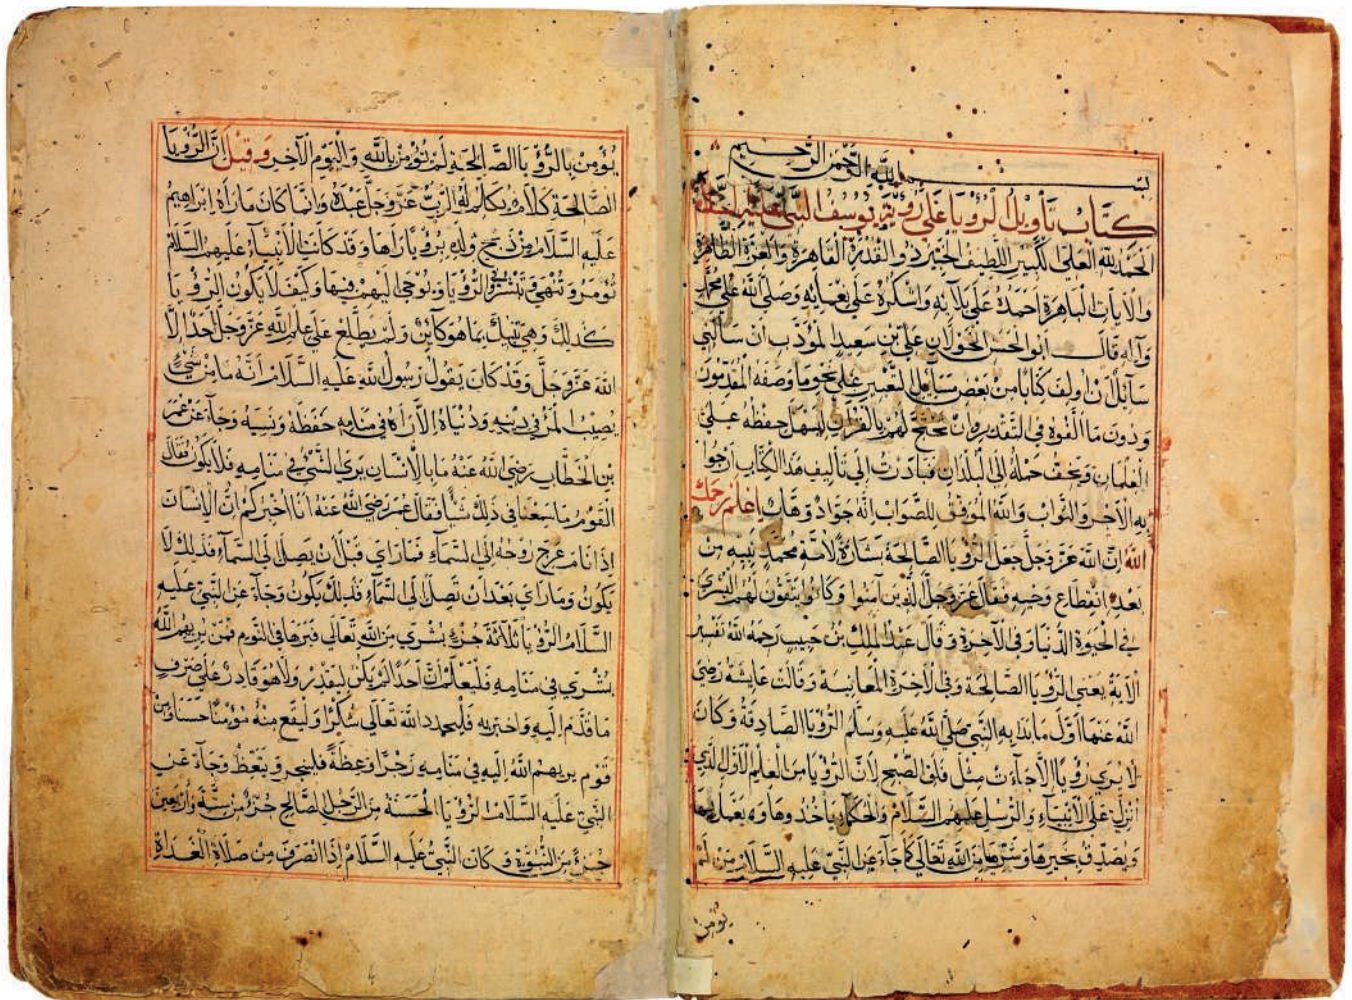 بسم الله الرحمن الرحيم
كتاب تأويل الرؤيا على رؤية يوسف النبي عليه
الحمد لله العلي الكبير اللطيف الخبير ذو القدرة القاهرة والعزة الظاهرة
والآيات الباهرة احمده على بلائه واشكره على نعمائه وصلى الله على محمد
وآله قال ابو الحسن الخولاني علي بن سعيد المؤدب ان سألني
سائل ان اولف كتابا من بعض مسائل التعبير على نحو ما وصفه المقدمون
ودون ما الفوه في التقدير وان نحتج لهم بالقرآن ليسهل حفظه على
الغلمان ويخف حمله الى البلدان فبادرت الى تأليف هذا الكتاب ارجوا
به الاجر والثواب والله الموفق للصواب انه جواد وهاب اعلم رحمك
الله ان الله عز وجل جعل الرؤيا الصالحة بشارة لامة محمد نبيه من
بعد انقطاع وحيه فقال عز وجل الذين آمنوا وكانوا يتقون لهم البشرى
في الحيوة الدنيا وفي الآخرة وقال عبد الملك بن حبيب رحمه الله تفسير
الآية يعني الرؤيا الصالحة وفي الآخرة المعاينة وقالت عايشة رضي
الله عنها اول ما بدا به النبي صلى الله عليه وسلم الرؤيا الصادقة وكان
لا يرى رؤيا الا جاءت مثل فلق الصبح لأن الرؤيا من العلم الاول الذي
انزل على الانبياء والرسل عليهم السلام والحكماء ياخذوها وبه يعمل
ويصدق بخيرها وشرها من الله تعالى كما جاء عن النبي عليه السلام من لم
يؤمن
يؤمن بالرؤيا الصالحة لم يؤمن بالله واليوم الآخر وقد قيل ان الرؤيا
الصالحة كلام يكلم له الرب عز وجل عبده وانما كان ما رآه ابراهيم
عليه السلام من ذبح ولده برؤيا رآها وقد كانت الانبياء عليهم السلام
تؤمر وتنهى وتبشر في الرؤيا ويوحى اليهم فيها وكيف لا يكون الرؤيا
كذلك وهي تنبيك بما هو كاين ولم يطلع على علم الله عز وجل احدا الا
الله عز وجل وقد كان يقول رسول الله عليه السلام انه ما من شيء
يصيب المرء في دينه ودنياه الا رآه في منامه حفظه ونسيه وجاء عن عمر
بن الخطاب رضي الله عنه ما بال الانسان يرى الشيء في منامه فلا يكون فقال
القوم ما سمعنا في ذلك شيأ فقال عمر رضي الله عنه انا اخبركم ان الانسان
اذا نام عرج روحه الى السماء فما راى قبل ان يصل الى السماء فذلك لا
يكون وما راى بعد ان تصل الى السماء فذلك يكون وجاء عن النبي عليه
السلام الرؤيا ثلاثة جزء بشرى من الله تعالى في النوم فمن يريهم الله
بشرى في منامه فليعلم ان احدا لم يكن ليقدر ولا هو قادر على صرف
ما قدم اليه واختر به فليحمد الله تعالى شكرا وليقع منه مؤمنا حسنا ومن
قوم يريهم الله اليه في منامه زجرا وعظة فلينجر ويتعظ وجاء عن
النبي عليه السلام الرؤيا الحسنة من الرجل الصالح جزء من ستة واربعين
جزء من النبوة وكان النبي عليه السلام اذا انصرف من صلاة الغداة